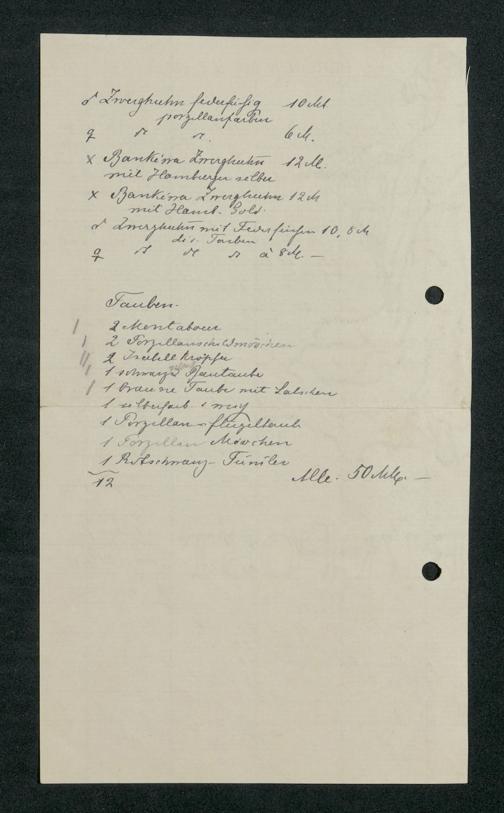 ♂ Zwerghuhn federfüßig 10 Mk
porzellanfarben
♀ " " 6 M.
x Bankiwa Zwerghuhn 12 M.
mit Hamburger silber
x Bankiwa Zwerghuhn 12 M
mit Hamb. Gold.
♂ Zwerghuhn mit Federfüßen 10, 8 M
div. Farben
♀ " " " à 8 M. —
Tauben.
2
2 Porzellanschildmövchen
2 Isabell Kröpfer
1 schwarze
1 braune Taube mit Latschen
1 silberfarb.
1 Porzellan-flügeltaube
1 Porzellan Mövchen
1 Rotschwanz-Tümler
12 Alle. 50 Mk. —